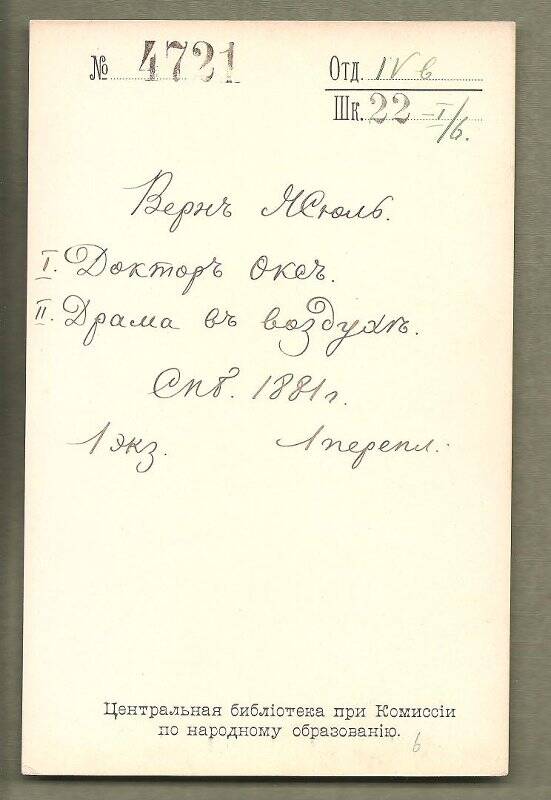 № 4721
Отд. IV в
Шк. 22 – I/6.
Вернъ Жюль.
I. Докторъ Оксъ.
II. Драма въ воздухѣ.
Спб. 1881 г.
1 экз. 1 перепл.
Центральная библіотека при Комиссіи
по народному образованію.
6